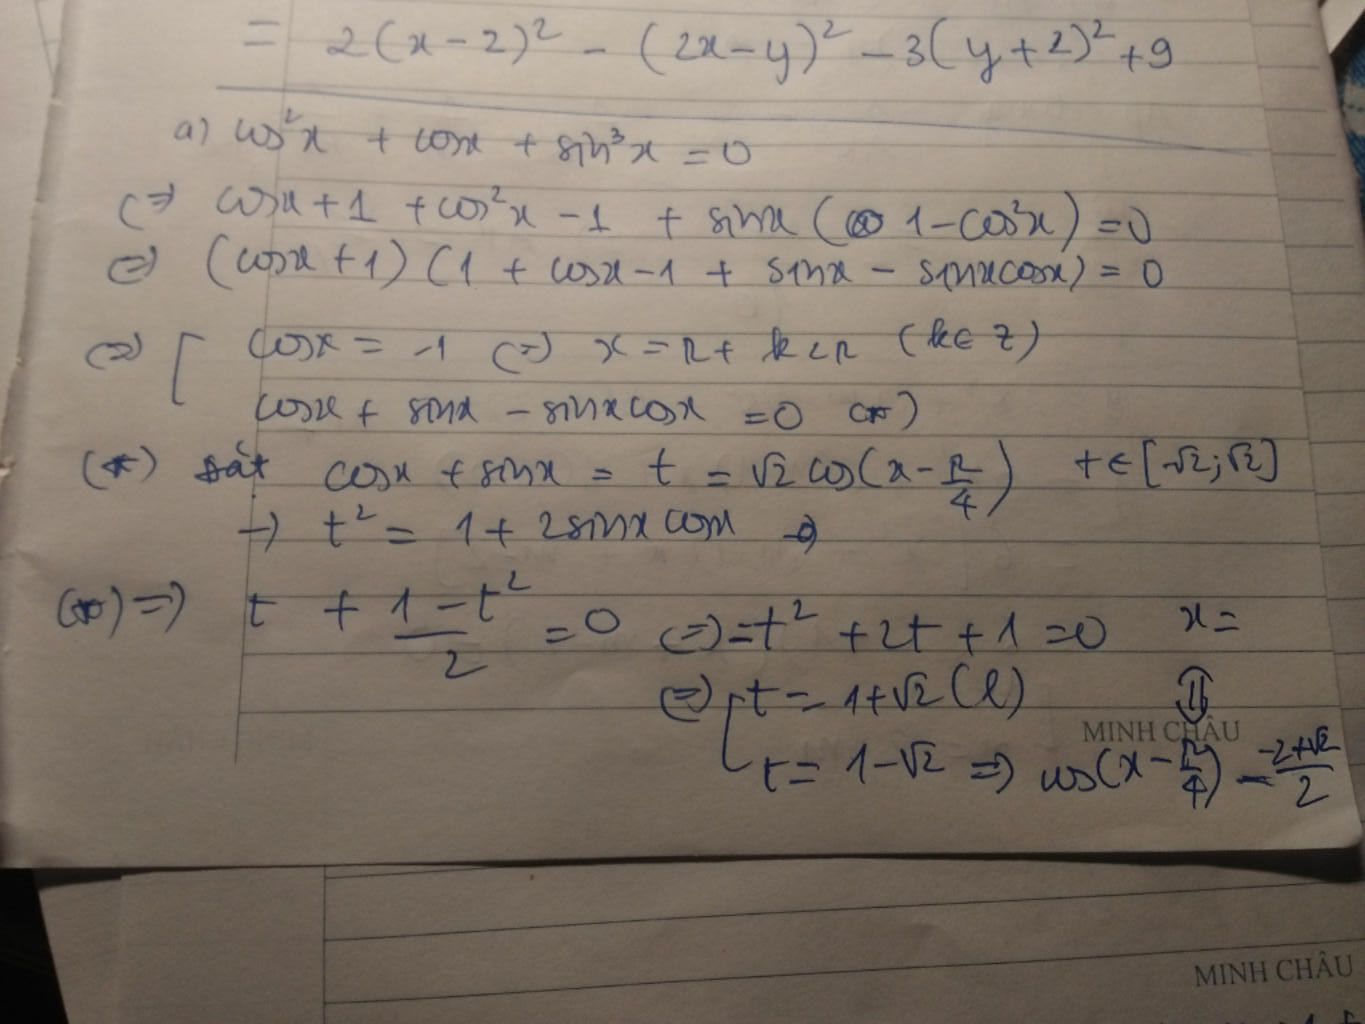 = 2(x-2)² - (2x-y)² - 3(y+2)² +9
a) cos²x + cosx + sin³x = 0
(=) cosx+1 + cos²x -1 + sinx ( 1-cos²x) =0
(=) (cosx+1) (1 + cosx-1 + sinx - sinxcosx) = 0
(=) [ cosx = -1 (=) x = π + k2π (k∈Z)
cosx + sinx - sinxcosx =0 (*)
(*) đặt cosx + sinx = t = √2 cos(x-π/4) t∈[-√2;√2]
-> t² = 1+ 2sinxcosx
(*) => t + (1-t²)/2 =0 (=) -t² +2t +1 =0 x=
(=) [ t = 1+√2 (l) ⇕
MINH CHÂU
t = 1-√2 => cos(x-π/4) = (-2+√2)/2
MINH CHÂU